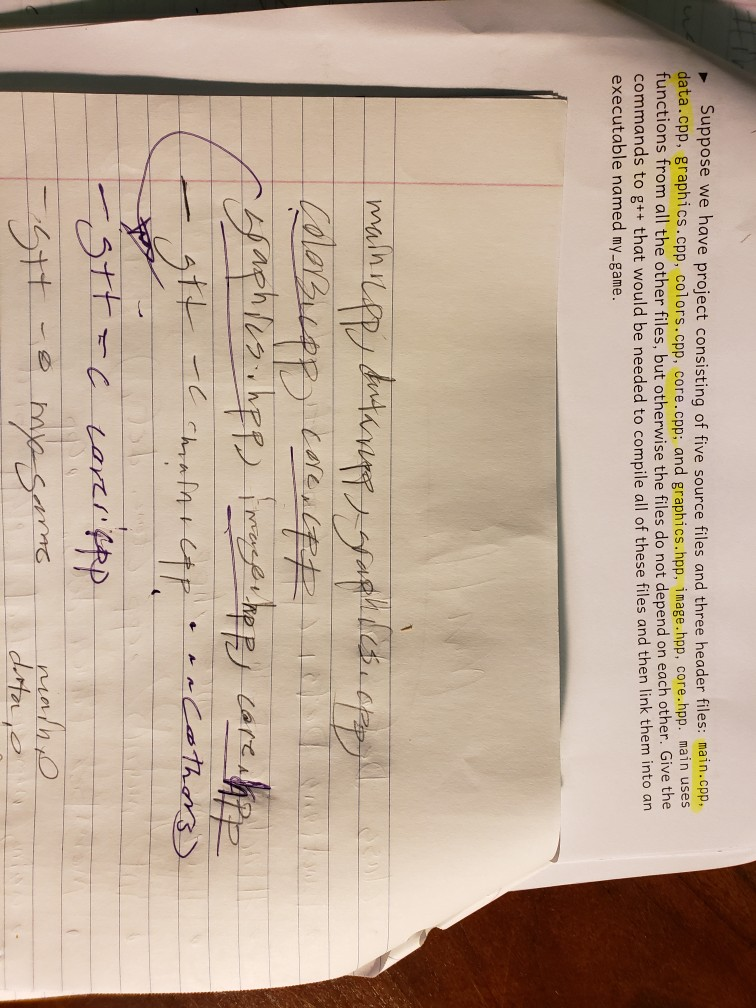 ▶ Suppose we have project consisting of five source files and three header files: main.cpp,
data.cpp, graphics.cpp, colors.cpp, core.cpp; and graphics.hpp, image.hpp, core.hpp. main uses
functions from all the other files, but otherwise the files do not depend on each other. Give the
commands to g++ that would be needed to compile all of these files and then link them into an
executable named my_game.
main.cpp, data.cpp, graphics.cpp,
colors.cpp, core.cpp
graphics.hpp, image.hpp, core.hpp
- g++ -c main.cpp ... (others)
- g++ -c core.cpp
- g++ -o my_game main.o
data.o